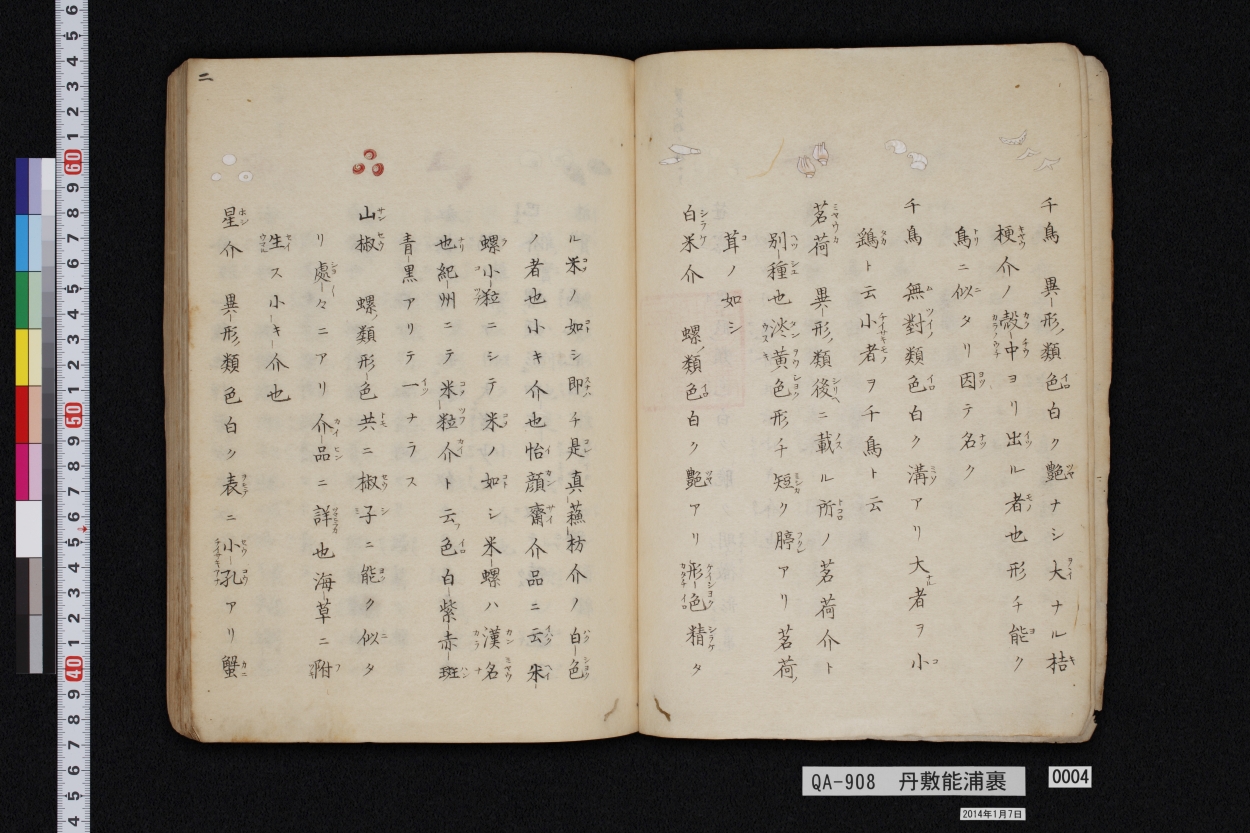 千鳥 異形ノ類色白ク艶ナシ大ナル桔
梗介ノ殻中ヨリ出ル者也形チ能ク
鳥ニ似タリ因テ名ク
千鳥 無對ノ類色白ク溝アリ大者ヲ小
鵄ト云小者ヲ千鳥ト云
茗荷 異形ノ類後ニ載ル所ノ茗荷介ト
別種也淡黄色形チ短ク脝アリ茗荷ノ
茸ノ如シ
白米介 螺ノ類色白ク艶アリ形色精タ
二
ル米ノ如シ即チ是真蘓枋介ノ白色
ノ者也小キ介也怡顔齋介品ニ云米
螺小粒ニシテ米ノ如シ米螺ハ漢名
也紀州ニテ米粒介ト云フ色白紫赤斑
青黒アリテ一ナラス
山椒 螺ノ類形色共ニ椒子ニ能ク似タ
リ處々ニアリ介品ニ詳也海草ニ附
生ス小キ介也
星介 異形ノ類色白ク表ニ小孔アリ蟹
QA-908 丹敷能浦裹
0004
2014年1月7日